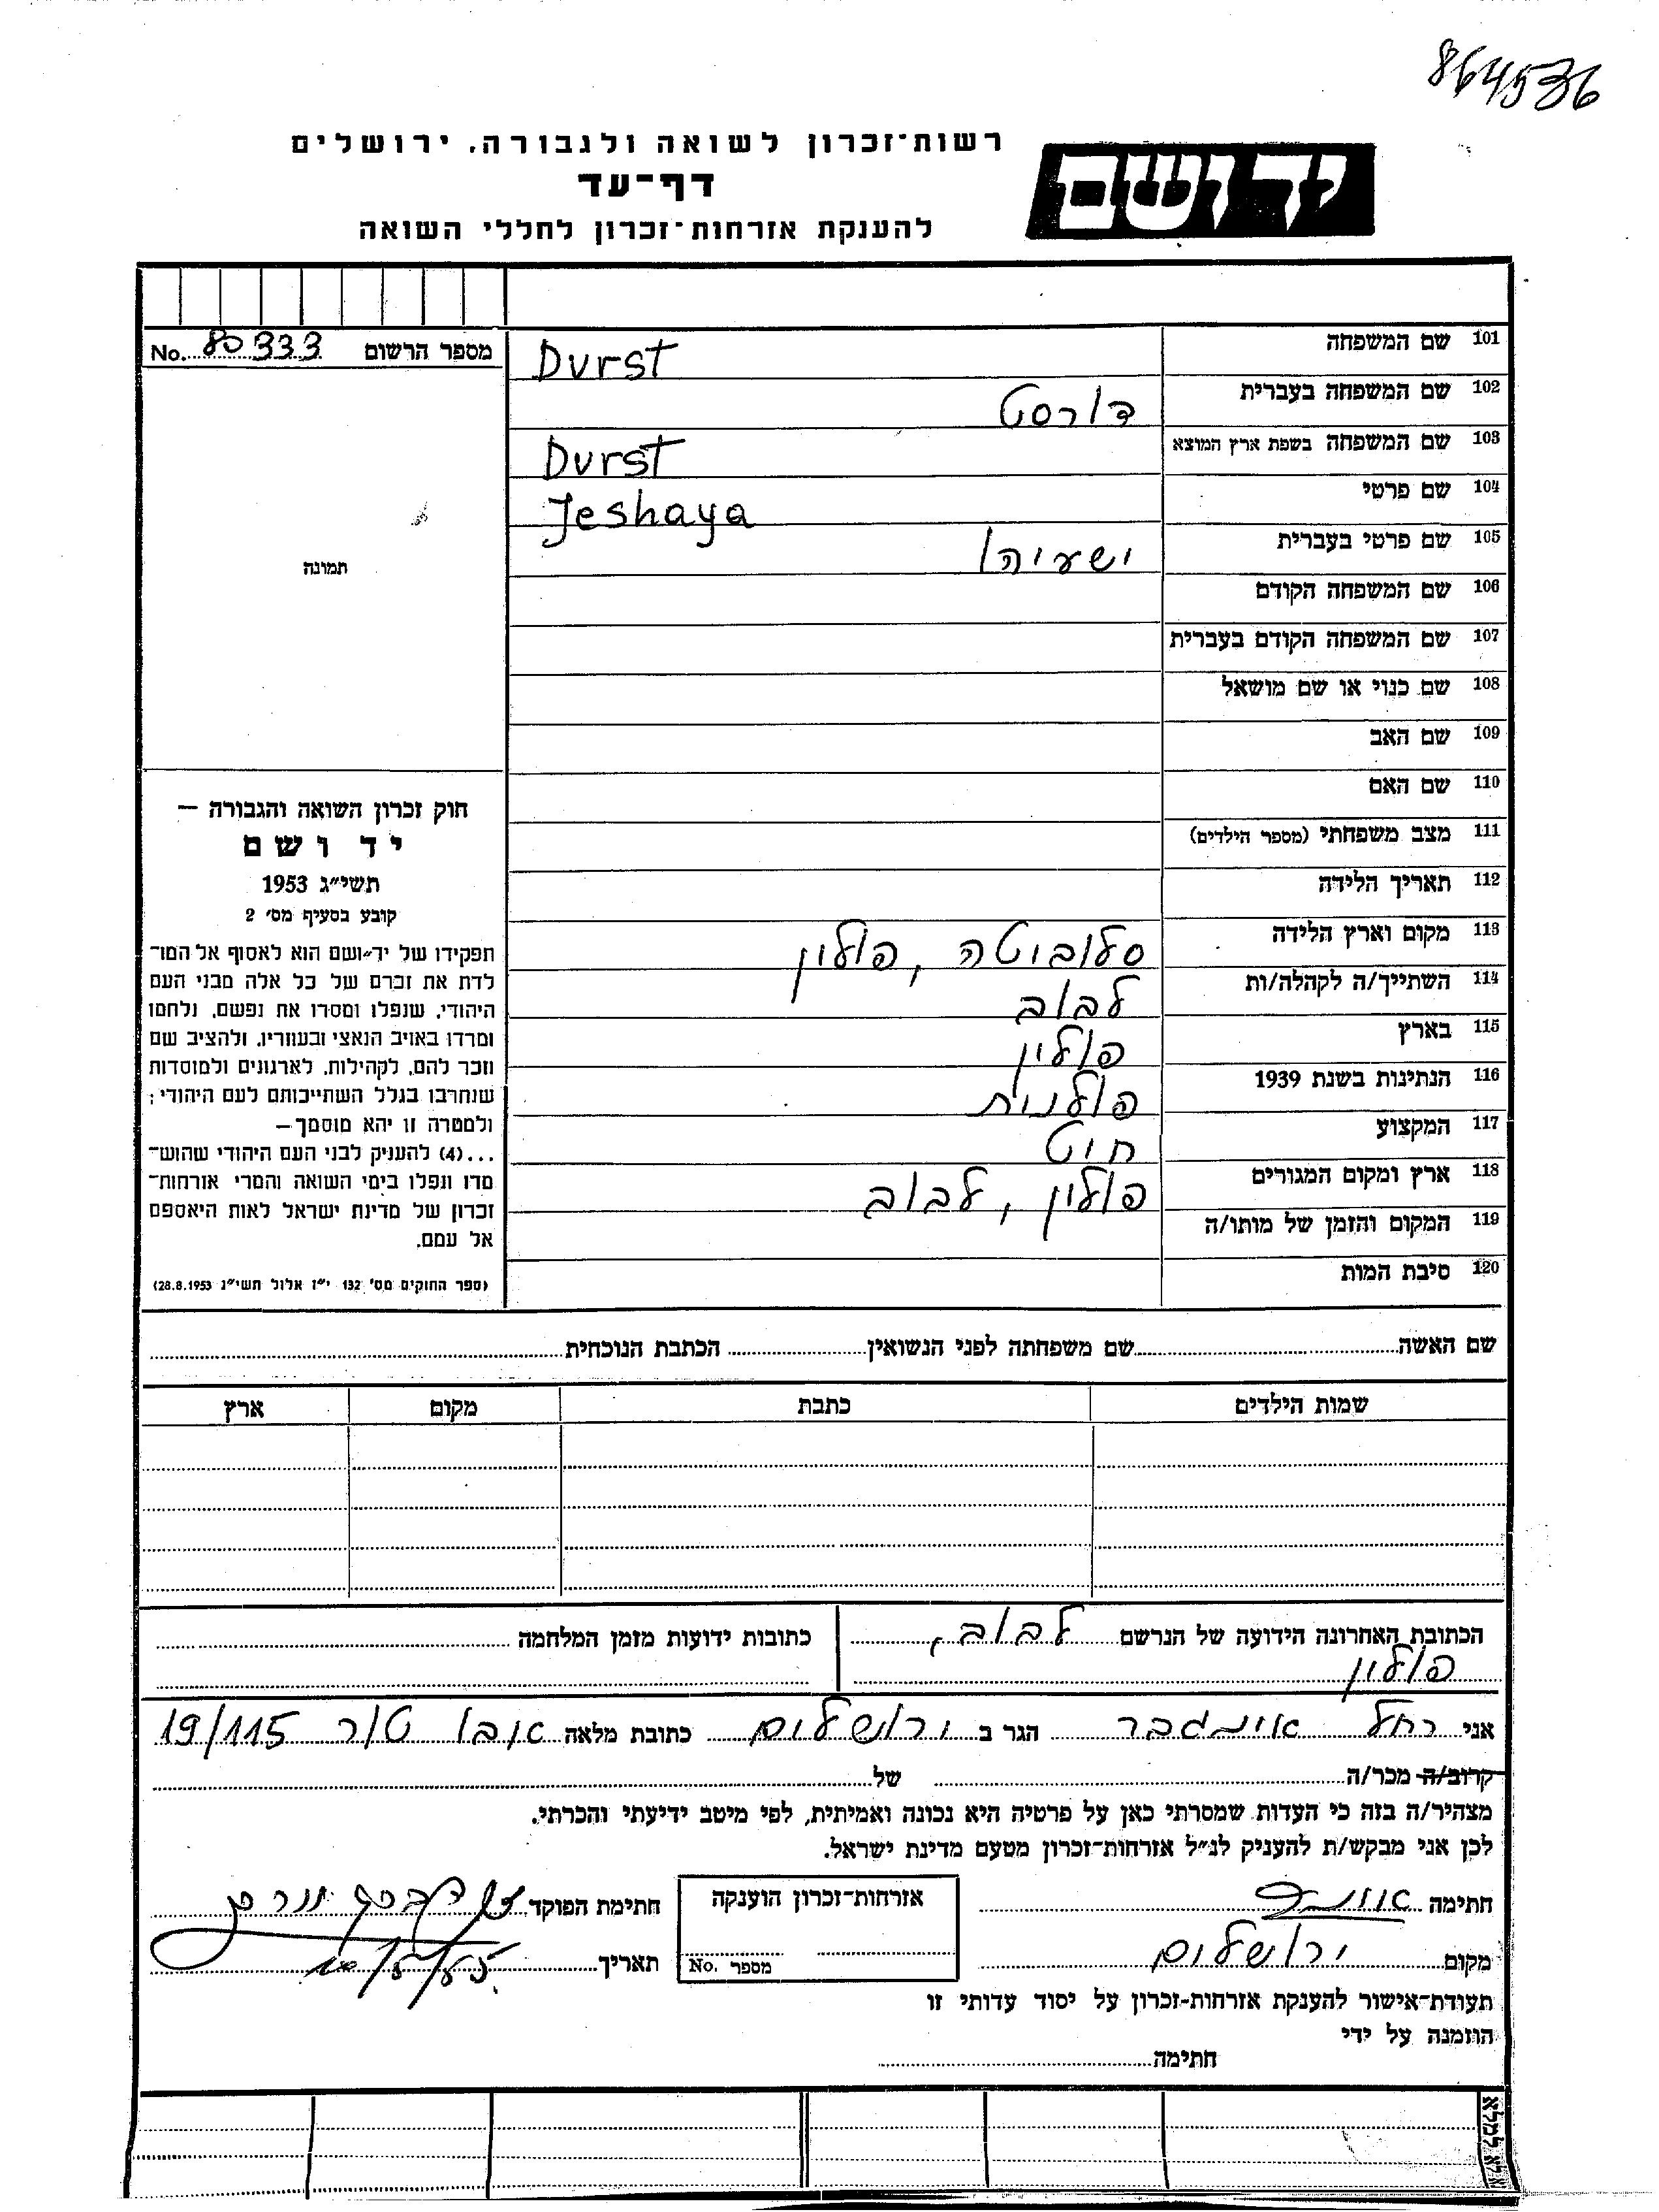 864536
רשות־זכרון לשואה ולגבורה, ירושלים
דף־עד
להענקת אזרחות־זכרון לחללי השואה
יד ושם
מספר הרשום No. 80333
101 שם המשפחה Durst
102 שם המשפחה בעברית דורסט
103 שם המשפחה בשפת ארץ המוצא Durst
104 שם פרטי Jeshaya
105 שם פרטי בעברית ישעיהו
106 שם המשפחה הקודם
107 שם המשפחה הקודם בעברית
108 שם כנוי או שם מושאל
109 שם האב
110 שם האם
111 מצב משפחתי (מספר הילדים)
112 תאריך הלידה
113 מקום וארץ הלידה סלוביטה, פולין
114 השתייך/ה לקהלה/ות לבוב
115 בארץ פולין
116 הנתינות בשנת 1939 פולנית
117 המקצוע חיט
118 ארץ ומקום המגורים פולין, לבוב
119 המקום והזמן של מותו/ה
120 סיבת המות
תמונה
חוק זכרון השואה והגבורה –
יד ושם
תשי״ג 1953
קובע בסעיף מס׳ 2
תפקידו של יד־ושם הוא לאסוף אל המו־
לדת את זכרם של כל אלה מבני העם
היהודי, שנפלו ומסרו את נפשם, נלחמו
ומרדו באויב הנאצי ובעוזריו, ולהציב שם
וזכר להם, לקהילות, לארגונים ולמוסדות
שנחרבו בגלל השתייכותם לעם היהודי;
ולמטרה זו יהא מוסמך–
...(4) להעניק לבני העם היהודי שהוש־
מדו ונפלו בימי השואה והמרי אזרחות־
זכרון של מדינת ישראל לאות היאספם
אל עמם.
(ספר החוקים מס׳ 132 י״ז אלול תשי״ג 28.8.1953)
שם האשה שם משפחתה לפני הנשואין הכתבת הנוכחית
שמות הילדים כתבת מקום ארץ
הכתובת האחרונה הידועה של הנרשם לבוב,
פולין
כתובות ידועות מזמן המלחמה
אני רחל הגר ב ירושלים כתובת מלאה אבו טור 19/115
קרוב/ה מכר/ה של
מצהיר/ה בזה כי העדות שמסרתי כאן על פרטיה היא נכונה ואמיתית, לפי מיטב ידיעתי והכרתי.
לכן אני מבקש/ת להעניק לנ״ל אזרחות־זכרון מטעם מדינת ישראל.
חתימה
אזרחות־זכרון הוענקה
מספר No.
חתימת הפוקד
מקום ירושלים
תאריך
תעודת־אישור להענקת אזרחות-זכרון על יסוד עדותי זו
הוזמנה על ידי
חתימה
לא למלא